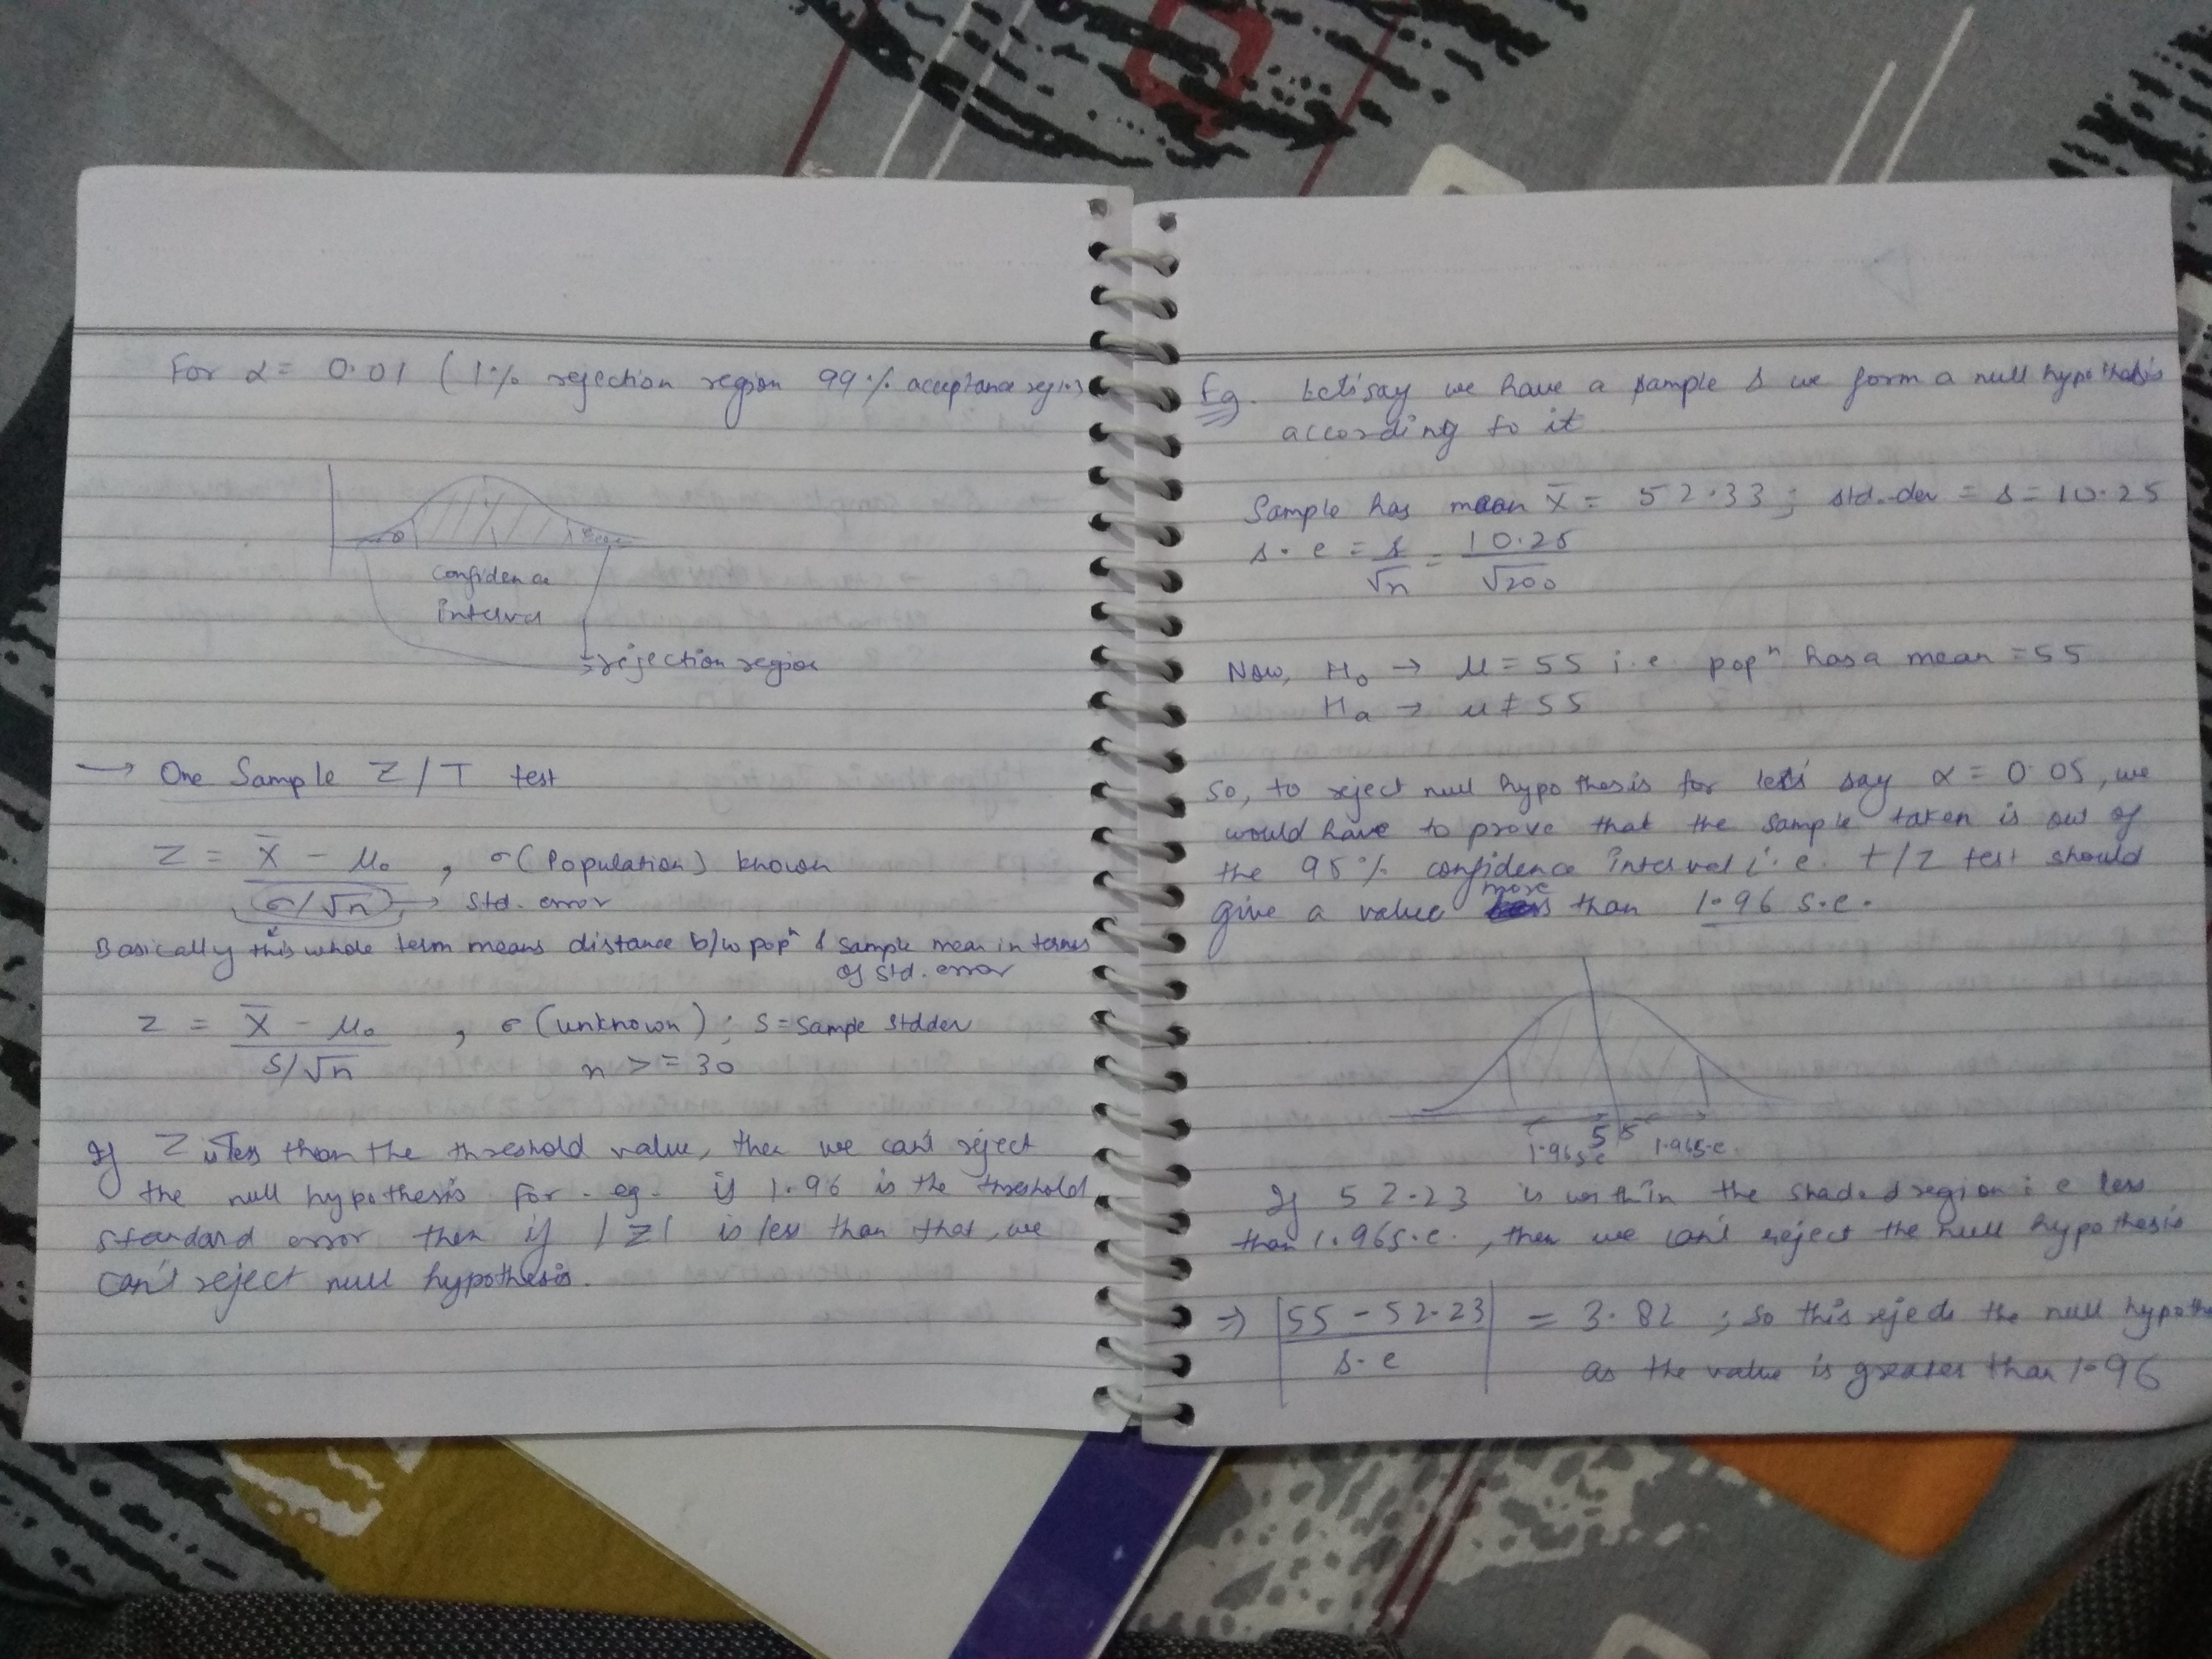 For α = 0.01 (1% rejection region 99% acceptance region
confidence
interval
rejection region
→ One Sample Z/T test
Z = x̄ - μ₀ , σ(Population) known
σ/√n → Std. error
Basically this whole term means distance b/w popⁿ & sample mean in terms
of std. error
z = x̄ - μ₀ , σ(unknown); S = Sample stddev
S/√n n >= 30
If Z is less than the threshold value, then we can't reject
the null hypothesis for. eg. if 1.96 is the threshold
standard error then if |Z| is less than that, we
can't reject null hypothesis.
Eg. Let's say we have a sample & we form a null hypothesis
according to it
Sample has mean x̄ = 52.33; std.dev = s = 10.25
s.e = s/√n = 10.25/√200
Now, H₀ → μ = 55 i.e. popⁿ has a mean = 55
Hₐ → μ ≠ 55
So, to reject null hypothesis for let's say α = 0.05, we
would have to prove that the sample taken is out of
the 95% confidence interval i.e. t/z test should
give a value more than 1.96 s.e.
1.96s.e 55 1.96s.e.
If 52.23 is within the shaded region i.e less
than 1.96s.e., then we can't reject the null hypothesis
⇒ |55 - 52.23 / s.e| = 3.82 ; so this rejects the null hypothe
as the value is greater than 1.96